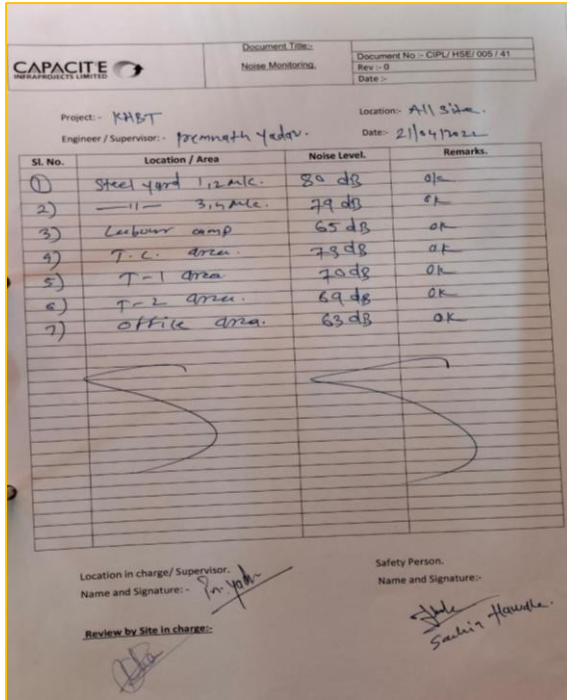 CAPACITE
INFRAPROJECTS LIMITED
Document Title:-
Noise Monitoring.
Document No :- CIPL/ HSE/ 005 / 41
Rev :- 0
Date :-
Project:- KHBT
Location:- All site.
Engineer / Supervisor:- Premnath Yadav.
Date:- 21/04/2022
Sl. No. Location / Area Noise Level. Remarks.
1 Steel yard 1,2 M/c. 80 dB ok
2) —11— 3,4 M/c. 79 dB ok
3) Labour camp 65 dB ok
4) T.C. area. 73 dB ok
5) T-1 area 70 dB ok
6) T-2 area. 69 dB ok
7) office area. 63 dB ok
Location in charge/ Supervisor.
Safety Person.
Name and Signature:-
Name and Signature:-
Sachin
Review by Site in charge:-